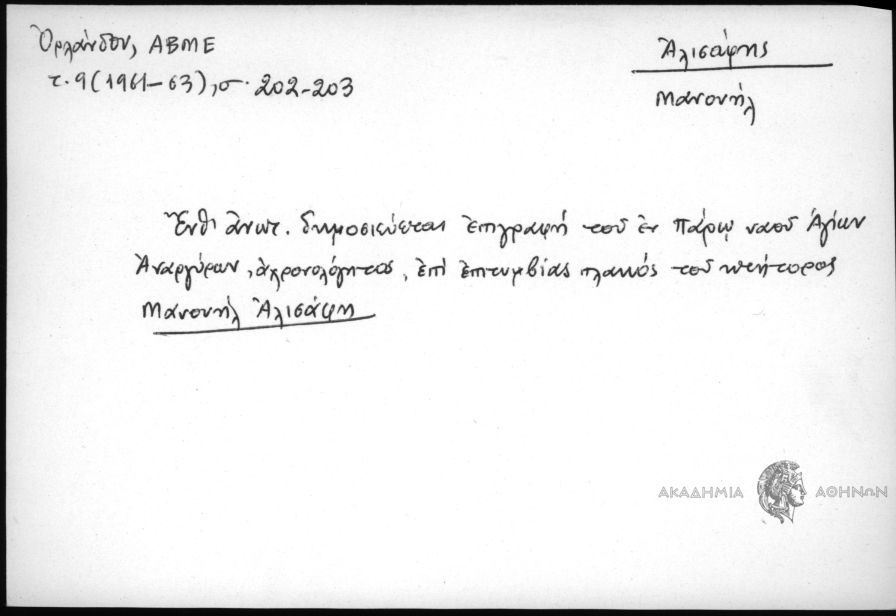 Ὀρλάνδου, ΑΒΜΕ
τ. 9 (1961-63), σ. 202-203
Ἀλισάφης
Μανουήλ
Ἔνθ' ἀνωτ. δημοσιεύεται ἐπιγραφή τοῦ ἐν Πάρῳ ναοῦ Ἁγίων
Ἀναργύρων, ἀχρονολόγητος, ἐπί ἐπιτυμβίας πλακός τοῦ κτήτορος
Μανουήλ Ἀλισάφη
ΑΚΑΔΗΜΙΑ ΑΘΗΝΩΝ